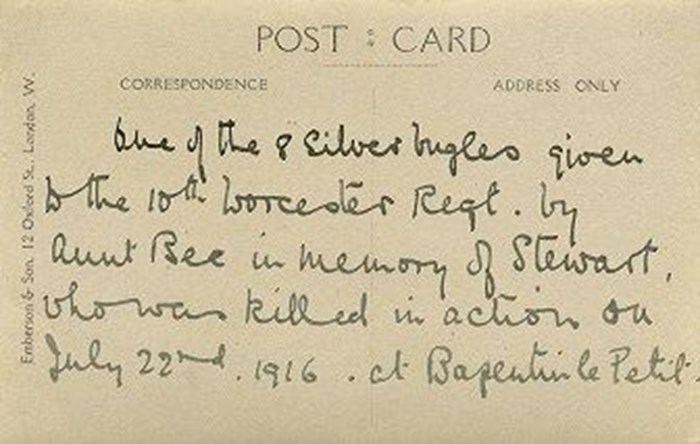 POST : CARD
CORRESPONDENCE
ADDRESS ONLY
One of the 8 Silver bugles given
to the 10th Worcester Regt. by
Aunt Bee in memory of Stewart,
who was killed in action on
July 22nd. 1916. at Bazentin le Petit.
Emberson & Son, 12 Oxford St., London, W.